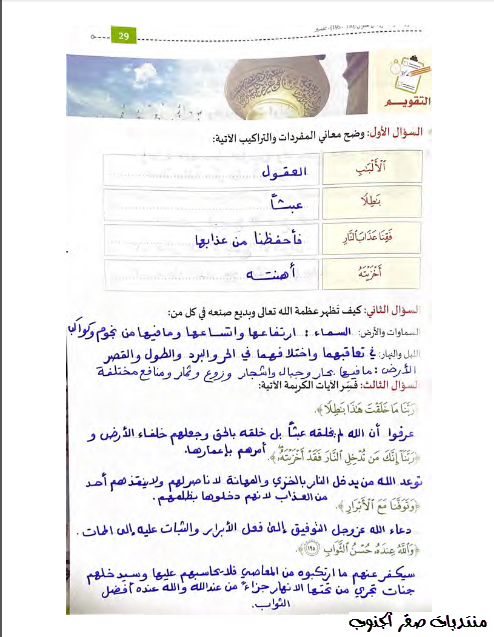 29
التقويم
السؤال الأول: وضح معاني المفردات والتراكيب الآتية:
الألباب
العقول
بطلا
عبثاً
فقنا عذاب النار
فأحفظنا من عذابها
أخزيته
أهنته
السؤال الثاني: كيف تظهر عظمة الله تعالى وبديع صنعه في كل من:
السماوات والأرض: السماء: ارتفاعها واتساعها ومافيها من نجوم وكواكب
الليل والنهار: في تعاقبهما واختلافهما في الحر والبرد والطول والقصر
الأرض: مافيها بحار وجبال واشجار وزوع وثمار ومنافع مختلفة
السؤال الثالث: فسّر الآيات الكريمة الآتية:
﴿ربنا ما خلقت هذا بطلا﴾.
عرفوا أن الله لم يخلقه عبثاً بل خلقه بالحق وجعلهم خلفاء الأرض و
أمرهم بإعمارها.
﴿ربنا إنك من تدخل النار فقد أخزيته﴾.
توعد الله من يدخل النار بالخزي والمهانة لا ناصر لهم ولا ينقذهم أحد
من العذاب لانهم دخلوها بظلمهم.
﴿وتوفنا مع الأبرار﴾.
دعاء الله عز وجل التوفيق إلى فعل الأبرار والثبات عليه إلى الممات.
﴿والله عنده حسن الثواب ١٩٥﴾
سيكفر عنهم ما ارتكبوه من المعاصي فلا يحاسبهم عليها وسيدخلهم
جنات تجري من تحتها الانهار جزاءً من عند الله والله عنده أفضل
الثواب.
منتديات صقر الجنوب